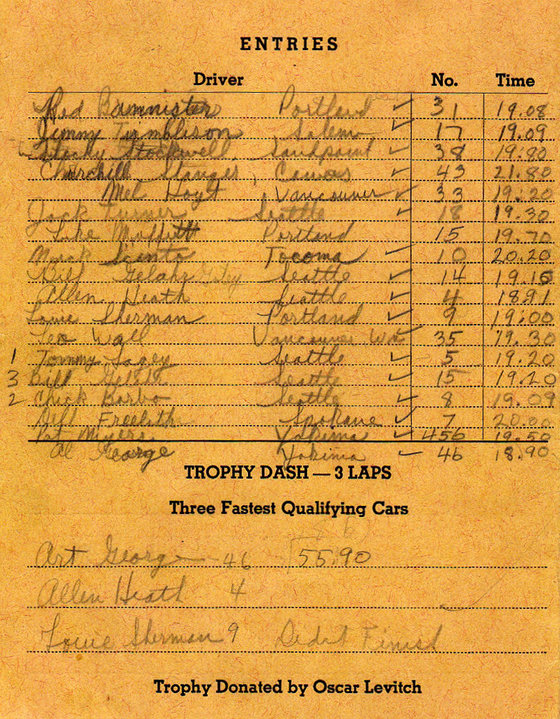 ENTRIES
Driver No. Time
Red Bammister Portland ✓ 31 19.08
Jimmy Tumblison Salem ✓ 17 19.09
Stocky Stockwell, Sandpoint ✓ 38 19.80
Churchill Stanger, Camas ✓ 43 21.80
Mel Hoyt Vancouver ✓ 33 19.20
Jack Turner Seattle 18 19.30
Portland 15 19.70
Tocoma ✓ 10 20.20
Bill Seattle ✓ 14 19.15
Allen Heath Seattle ✓ 4 18.91
Louie Sherman Portland ✓ 9 19.00
Leo Wall Vancouver Wa 35 19.30
1 Tommy Seattle ✓ 5 19.20
3 Bill Seattle ✓ 15 19.20
2 Chick Barbo Seattle ✓ 8 19.09
Bill Spokane ✓ 7
Myers Yakima ✓ 456 19.50
Al George Yakima ✓ 46 18.90
TROPHY DASH — 3 LAPS
Three Fastest Qualifying Cars
Art George 46 55.90
Allen Heath 4
Louie Sherman 9 Didt Finish
Trophy Donated by Oscar Levitch